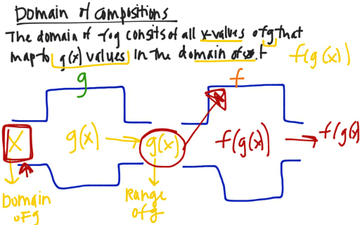 Domain of compositions
The domain of fog consits of all x-values of g that
map to g(x) values in the domain of f
f(g(x))
g
f
X
g(x)
g(x)
f(g(x))
f(g(x)
Domain
of g
Range
of g